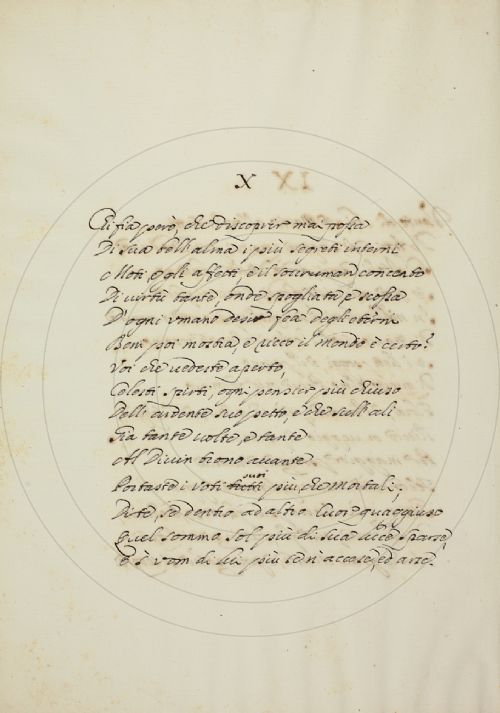 X
Chi fia però, che discoprir mai possa
Di sua bell'alma i più segreti interni
Moti, e gli affetti, e il sovruman concento
Di virtù tante, onde spogliata, e scossa
D'ogni umano desir fea degli eterni
Beni poi mostra, e ricco il mondo e
Voi che vedeste aperto,
Celesti spirti, ogni pensier più chiuso
Dell'ardente suo petto, e che sull'ali
Già tante volte, e tante
Al Divin trono avante
Portaste i voti suoi più che mortali;
Dite, se dentro ad altro Cuor quaggiuso
Quel sommo sol più di sua luce sparse,
E s'vom di lui più se n'accese, ed arse.